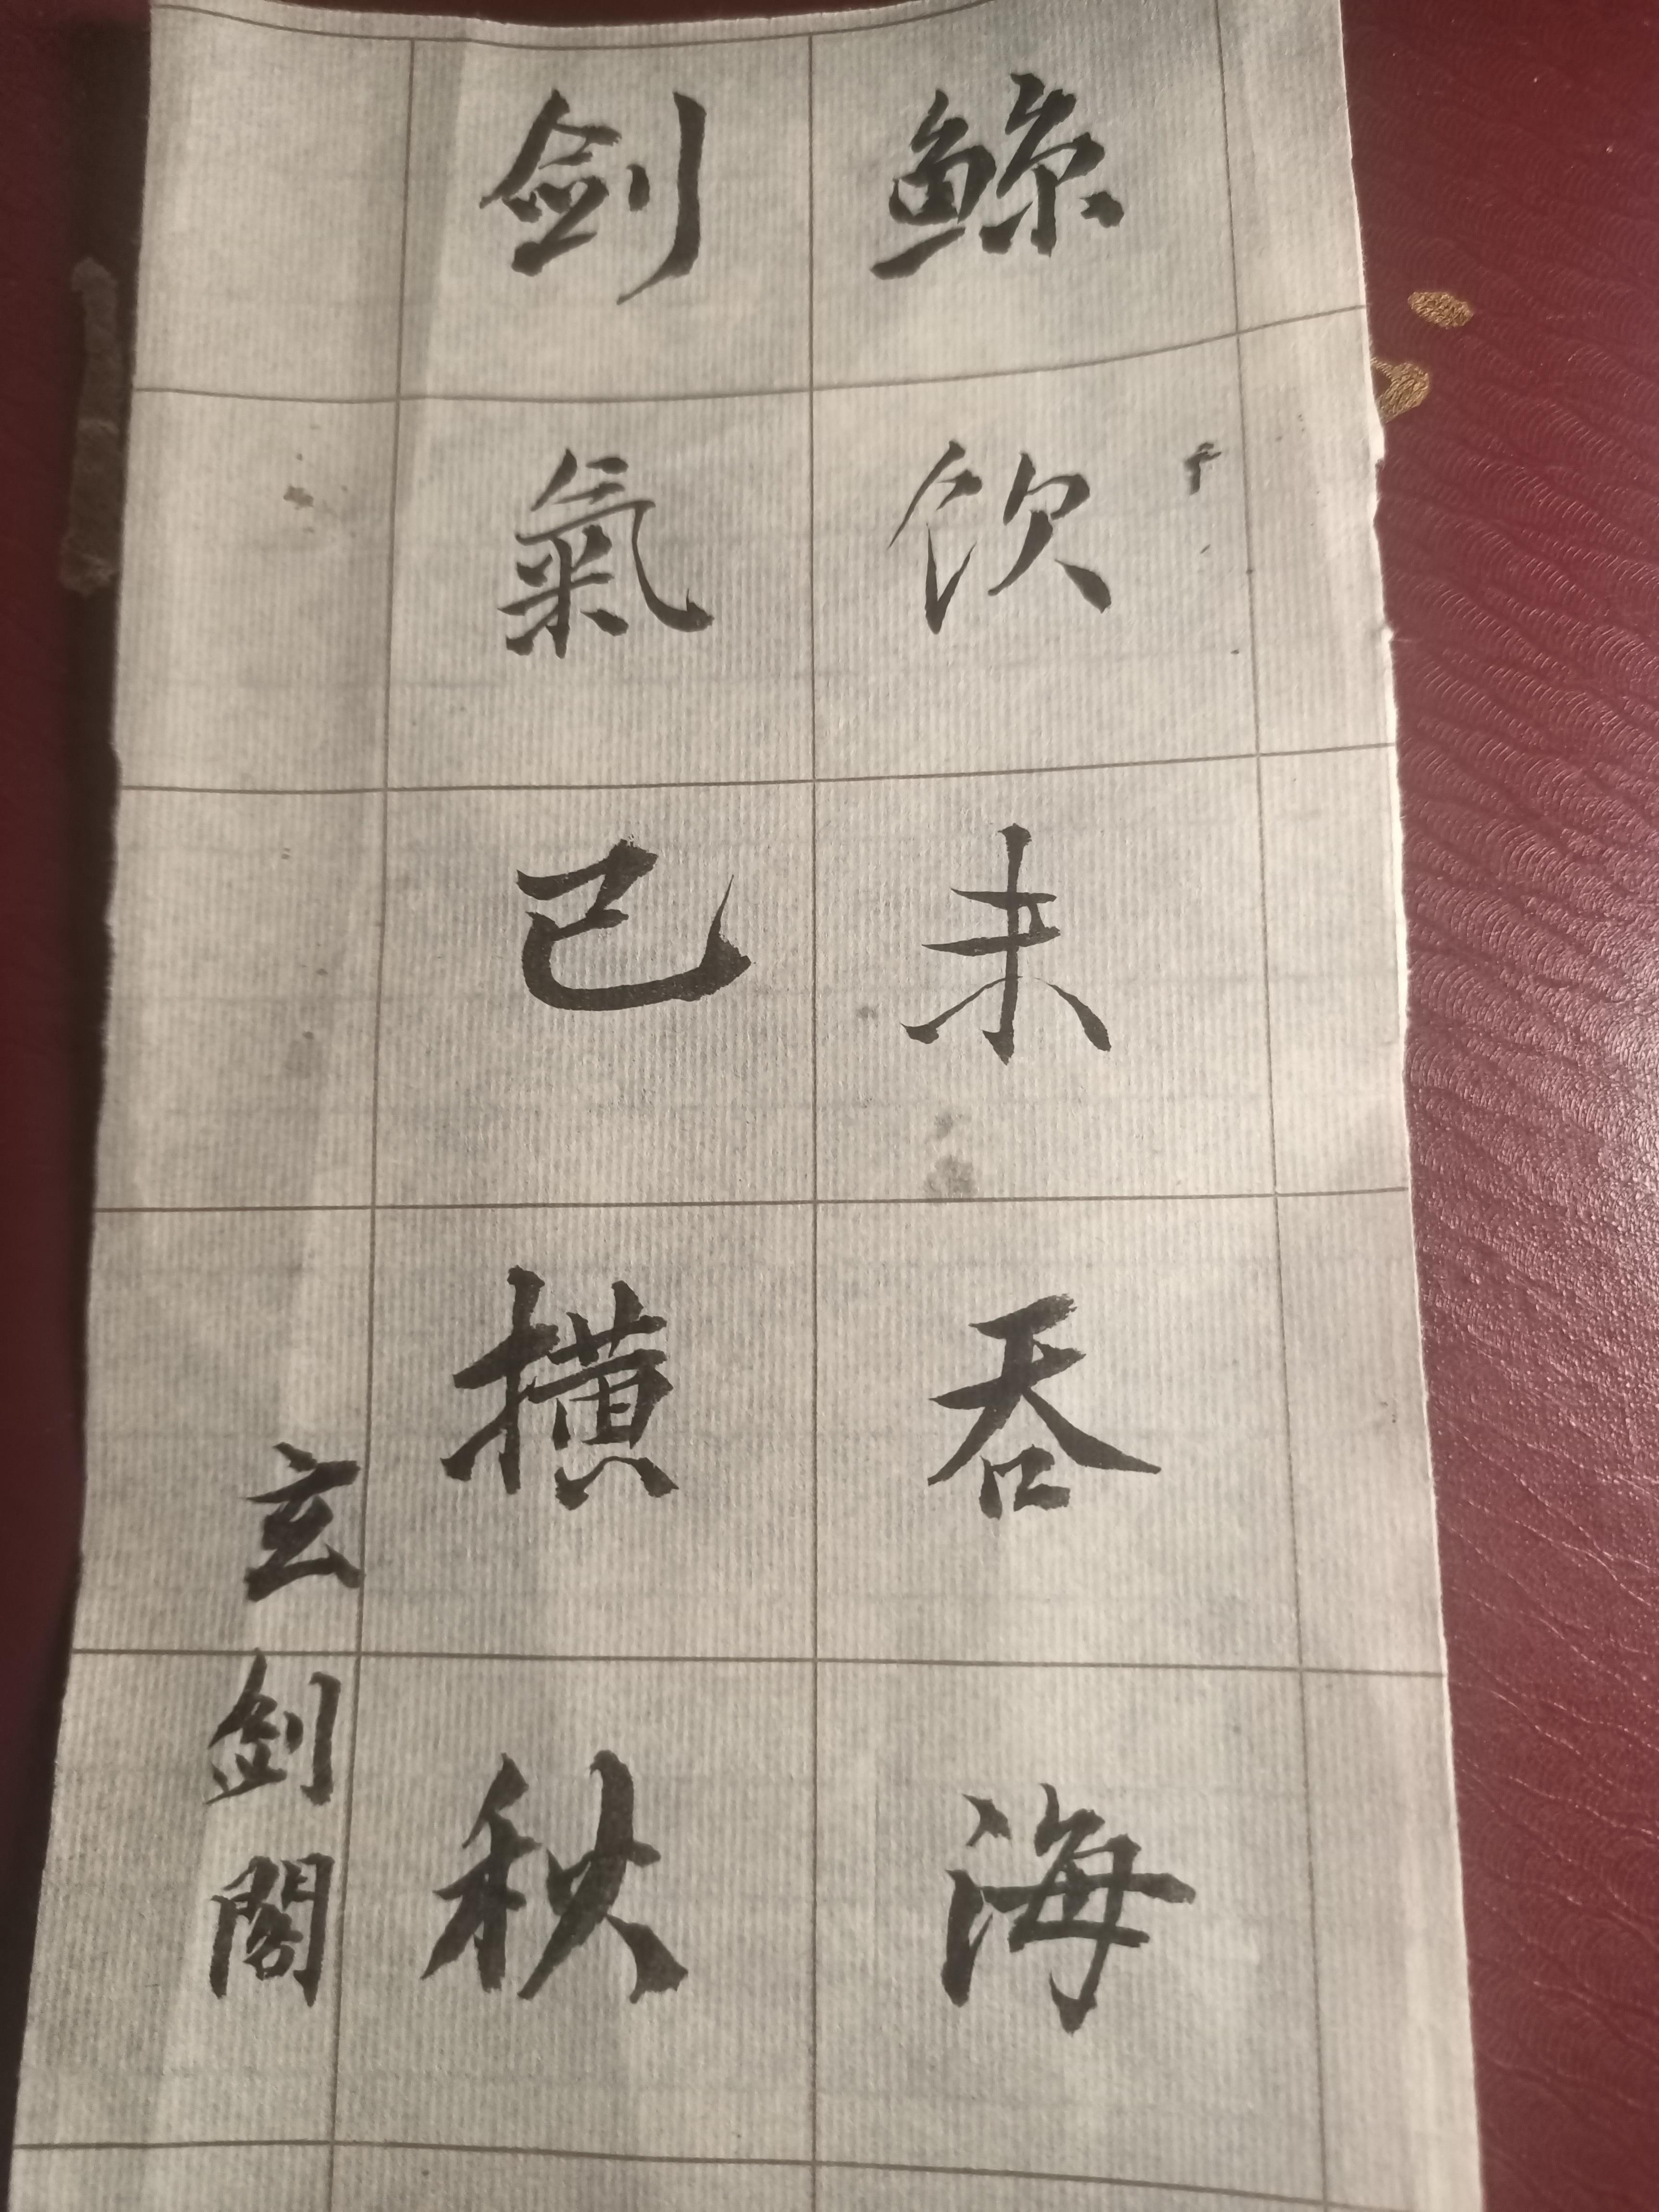 鯨飲未吞海
劍氣已橫秋
玄劍閣